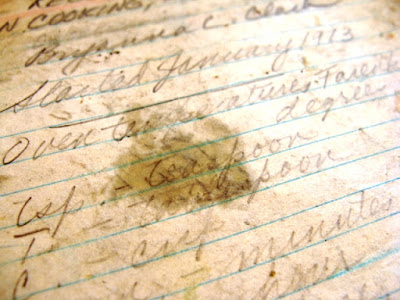 N. COOKING,
Bryanna C. Clark
Started January 1913
Oven temperatures, Farenh
degrees
tsp. - teaspoon
T. - tablespoon
C. - cup.
- minutes
hour